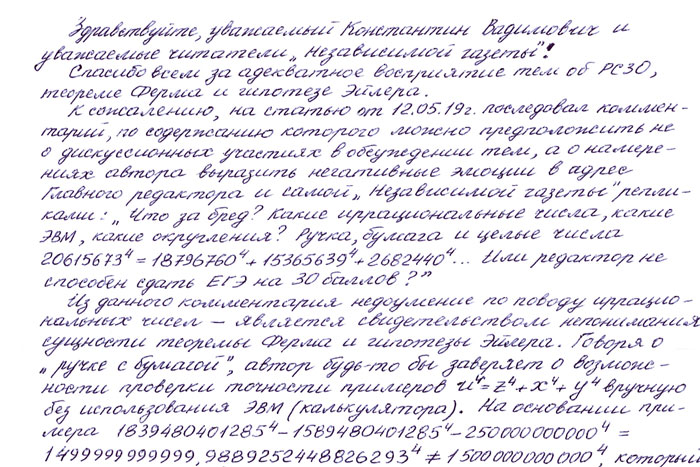 Здравствуйте, уважаемый Константин Вадимович и
уважаемые читатели „Независимой газеты"!
Спасибо всем за адекватное восприятие тем об РСЗО,
теореме Ферма и гипотезе Эйлера.
К сожалению, на статью от 12.05.19г. последовал коммен-
тарий, по содержанию которого можно предположить не
о дискуссионных участиях в обсуждении тем, а о намере-
ниях автора выразить негативные эмоции в адрес
Главного редактора и самой „Независимой газеты" репли-
ками: „Что за бред? Какие иррациональные числа, какие
ЭВМ, какие округления? Ручка, бумага и целые числа
20615673⁴ = 18796760⁴ + 15365639⁴ + 2682440⁴... Или редактор не
способен сдать ЕГЭ на 30 баллов?"
Из данного комментария недоумение по поводу иррацио-
нальных чисел – является свидетельством непонимания
сущности теоремы Ферма и гипотезы Эйлера. Говоря о
„ручке с бумагой", автор будь-то бы заверяет о возмож-
ности проверки точности примеров u⁴=z⁴+x⁴+y⁴ вручную
без использования ЭВМ (калькулятора). На основании при-
мера 1839480401285⁴ – 1589480401285⁴ – 250000000000⁴ =
1499999999999,9889252448826293⁴ ≠ 1500000000000⁴ который